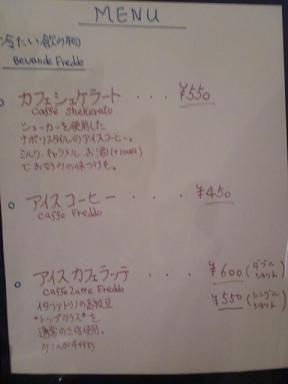 MENU
冷たい飲み物
Bevande Freddo
カフェシェケラート ・・・ ¥550
Caffè Shekerato
シェーカーを使用した
ナポリスタイルのアイスコーヒー。
ミルク、キャラメル、お酒(+100円)
でお好みの味つけも。
アイスコーヒー ・・・・ ¥450
Caffè Freddo
アイスカフェラッテ ・・・・ ¥600(ダブルショット)
Caffè Latte Freddo ¥550(シングルショット)
イタリアトリノの高級豆
"トップクラス"を
通常の2倍使用。